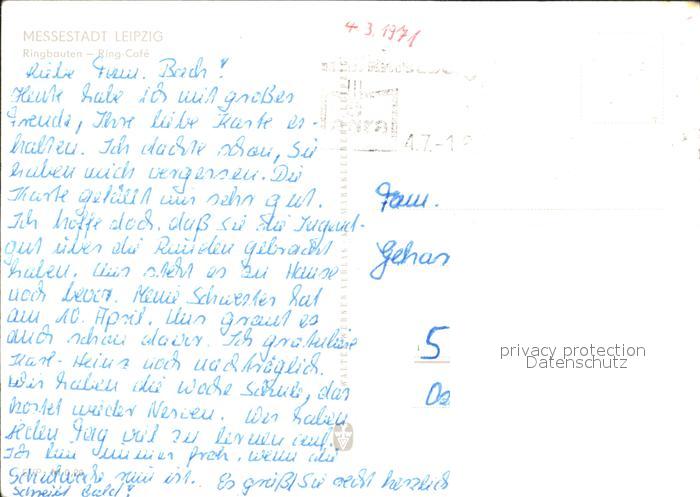 MESSESTADT LEIPZIG
Ringbauten — Ring-Café
4 3. 1971
Liebe Fam. Bach!
Heute habe ich mit großer
Freude, Ihre liebe Karte er-
halten. Ich dachte schon, Sie
haben mich vergessen. Die
Karte gefällt mir sehr gut.
Ich hoffe doch, daß Sie die Jugend-
gut über die Runden gebracht
haben. Uns steht es zu Hause
noch bevor. Meine Schwester hat
am 10. April. Uns graut es
auch schon davor. Ich gratuliere
Karl-Heinz noch nachträglich.
Wir haben die Woche
kostet wieder Nerven. Wir haben
jeden Tag viel zu lernen auf.
Ich bin immer froh, wenn die
Schulwoche rum ist. Es grüßt Sie recht herzlich
Schreibt bald!
4.7.-1
Fam.
5
privacy protection
Datenschutz